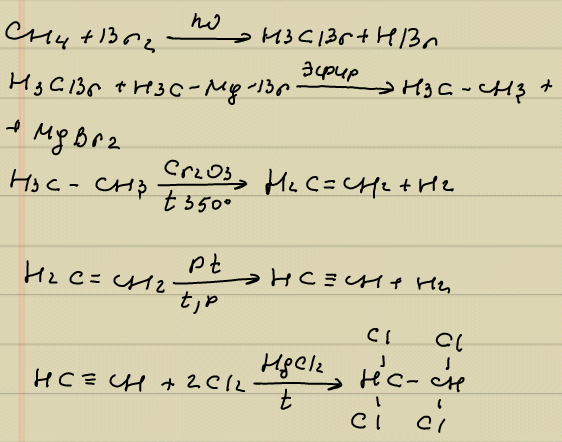 CH4 + Br2 hν → H3CBr + HBr
H3CBr + H3C-Mg-Br эфир → H3C-CH3 +
+ MgBr2
H3C-CH3 Cr2O3 t 350° → H2C=CH2 + H2
H2C=CH2 Pt t, p → HC≡CH + H2
Cl Cl
HC≡CH + 2Cl2 HgCl2 t → HC-CH
Cl Cl